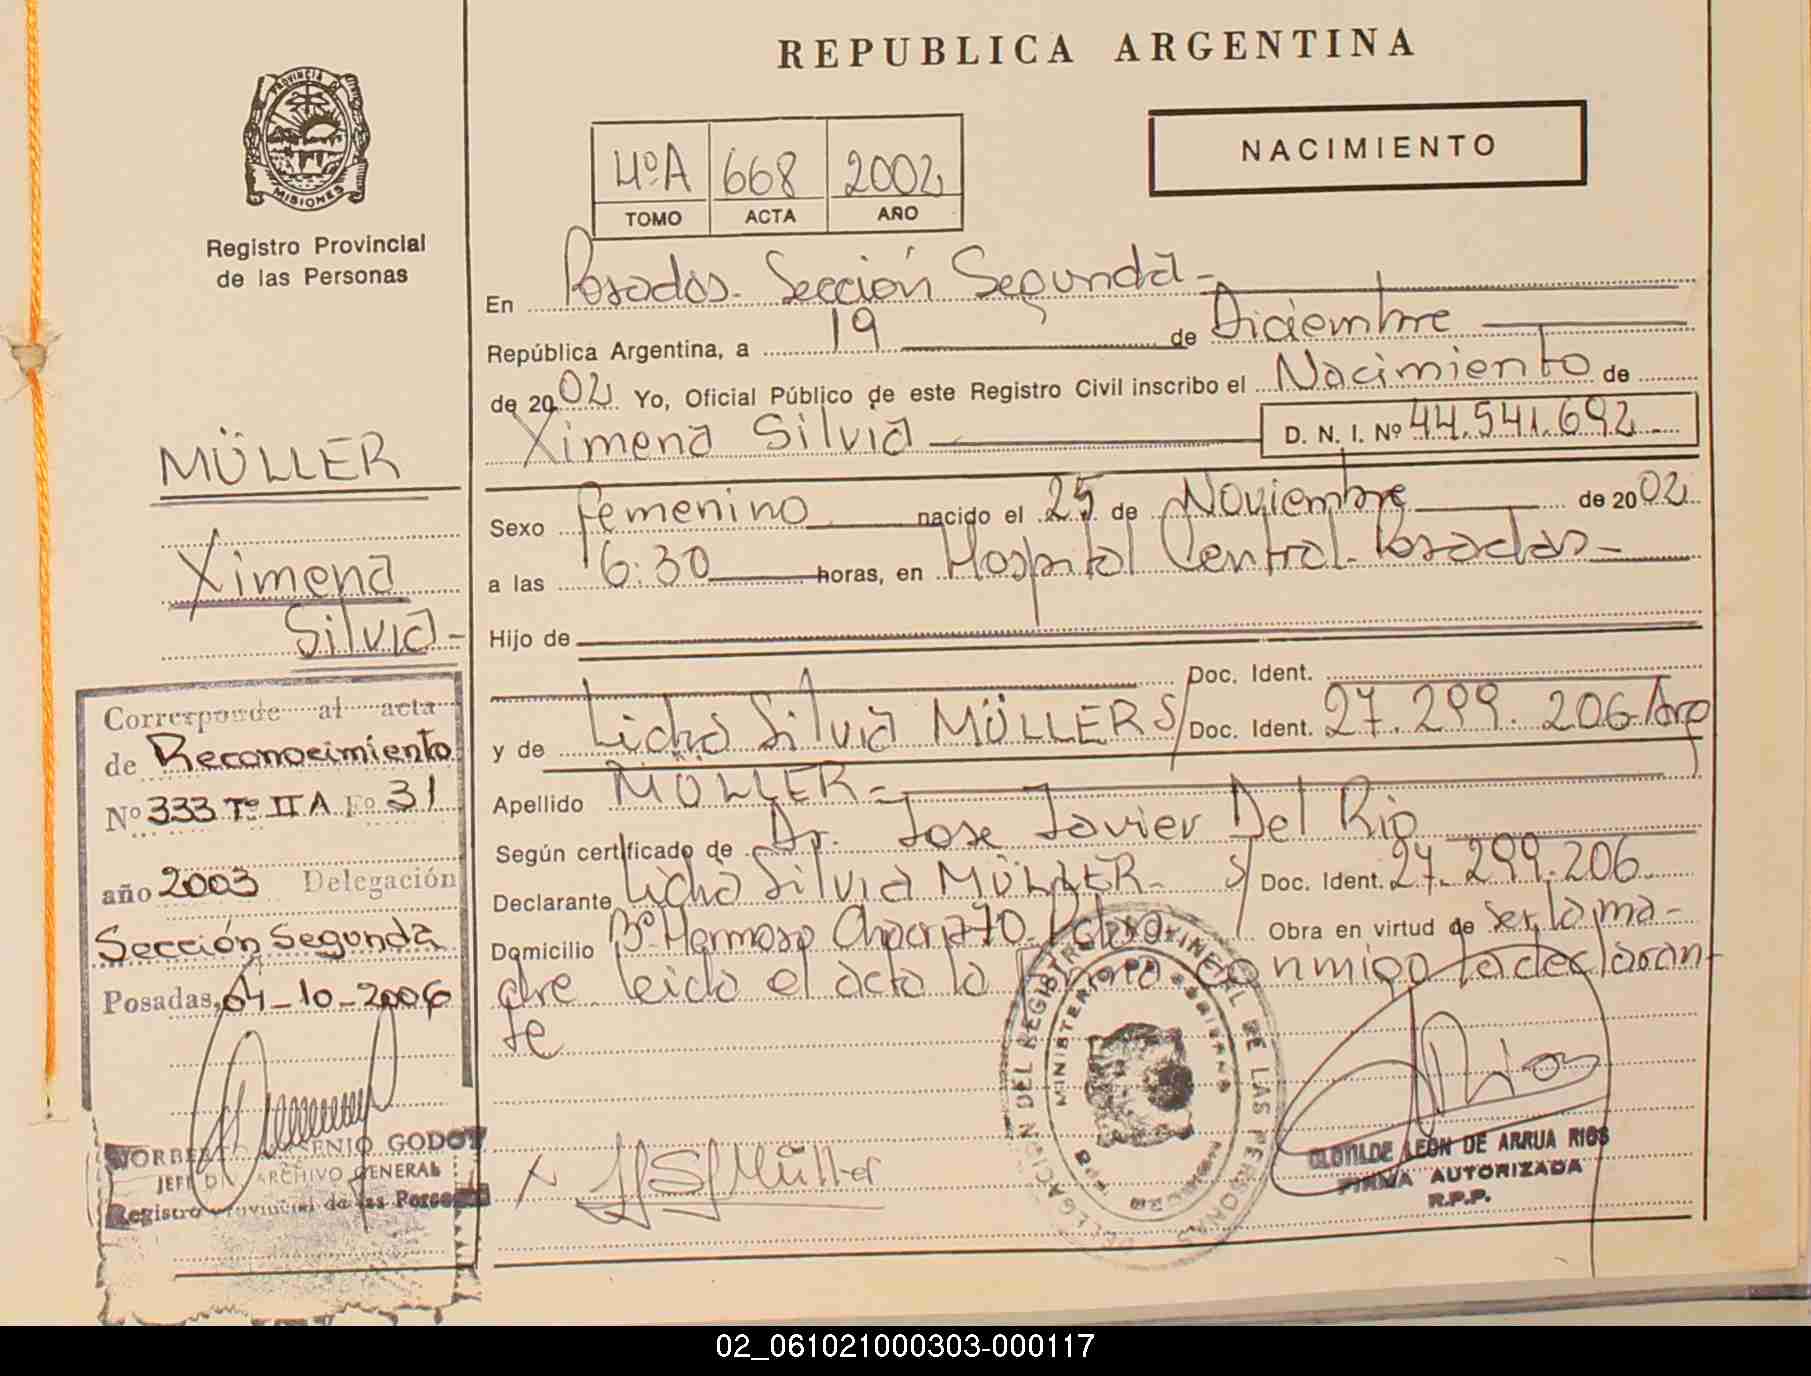 REPUBLICA ARGENTINA
PROVINCIA DE
MISIONES
Registro Provincial
de las Personas
NACIMIENTO
4ºA 668 2002
TOMO ACTA AÑO
En Posadas. Sección Segunda-
República Argentina, a 19 de Diciembre
de 2002 Yo, Oficial Público de este Registro Civil inscribo el Nacimiento de
Ximena Silvia D. N. I. Nº 44.541.692
Sexo femenino nacido el 25 de Noviembre de 2002
a las 6:30 horas, en Hospital Central-Posadas-
Hijo de
Doc. Ident.
y de Silvia MÜLLER S/ Doc. Ident. 27.299.206-Arg
Apellido MÜLLER-
Según certificado de Dr. Jose Javier Del Rio
Declarante Silvia MÜLLER- S/ Doc. Ident. 27.299.206
Domicilio Bº Hermoso Obra en virtud de ser la ma-
dre leida el acta la firma conmigo la declaran-
te
MÜLLER
Ximena
Silvia-
Corresponde al acta
de Reconocimiento
Nº 333 Tº II A Fo. 31
año 2003 Delegación
Sección Segunda
Posadas, 04-10-2006
GODOY
JEFE ARCHIVO GENERAL
Registro Provincial de las Personas
X Müller
DELEGACION DEL REGISTRO PROVINCIAL DE LAS PERSONAS
MINISTERIO DE GOBIERNO
CLOTILDE LEON DE ARRUA RIOS
FIRMA AUTORIZADA
R.P.P.
02_061021000303-000117